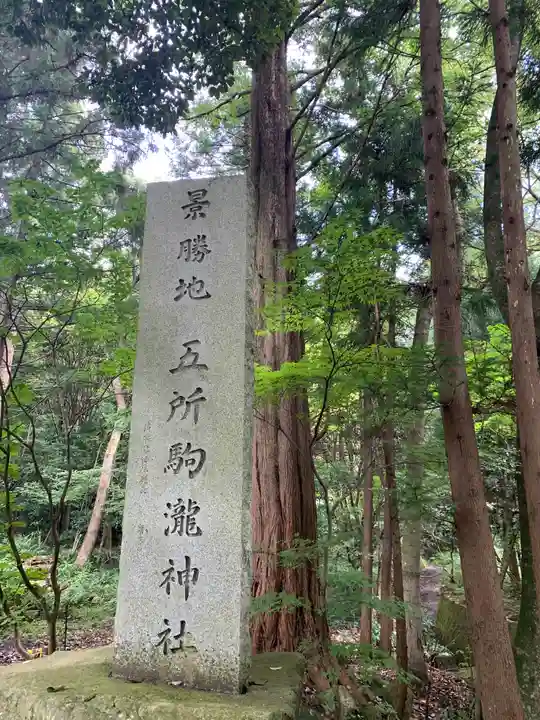 景勝地 五所駒瀧神社